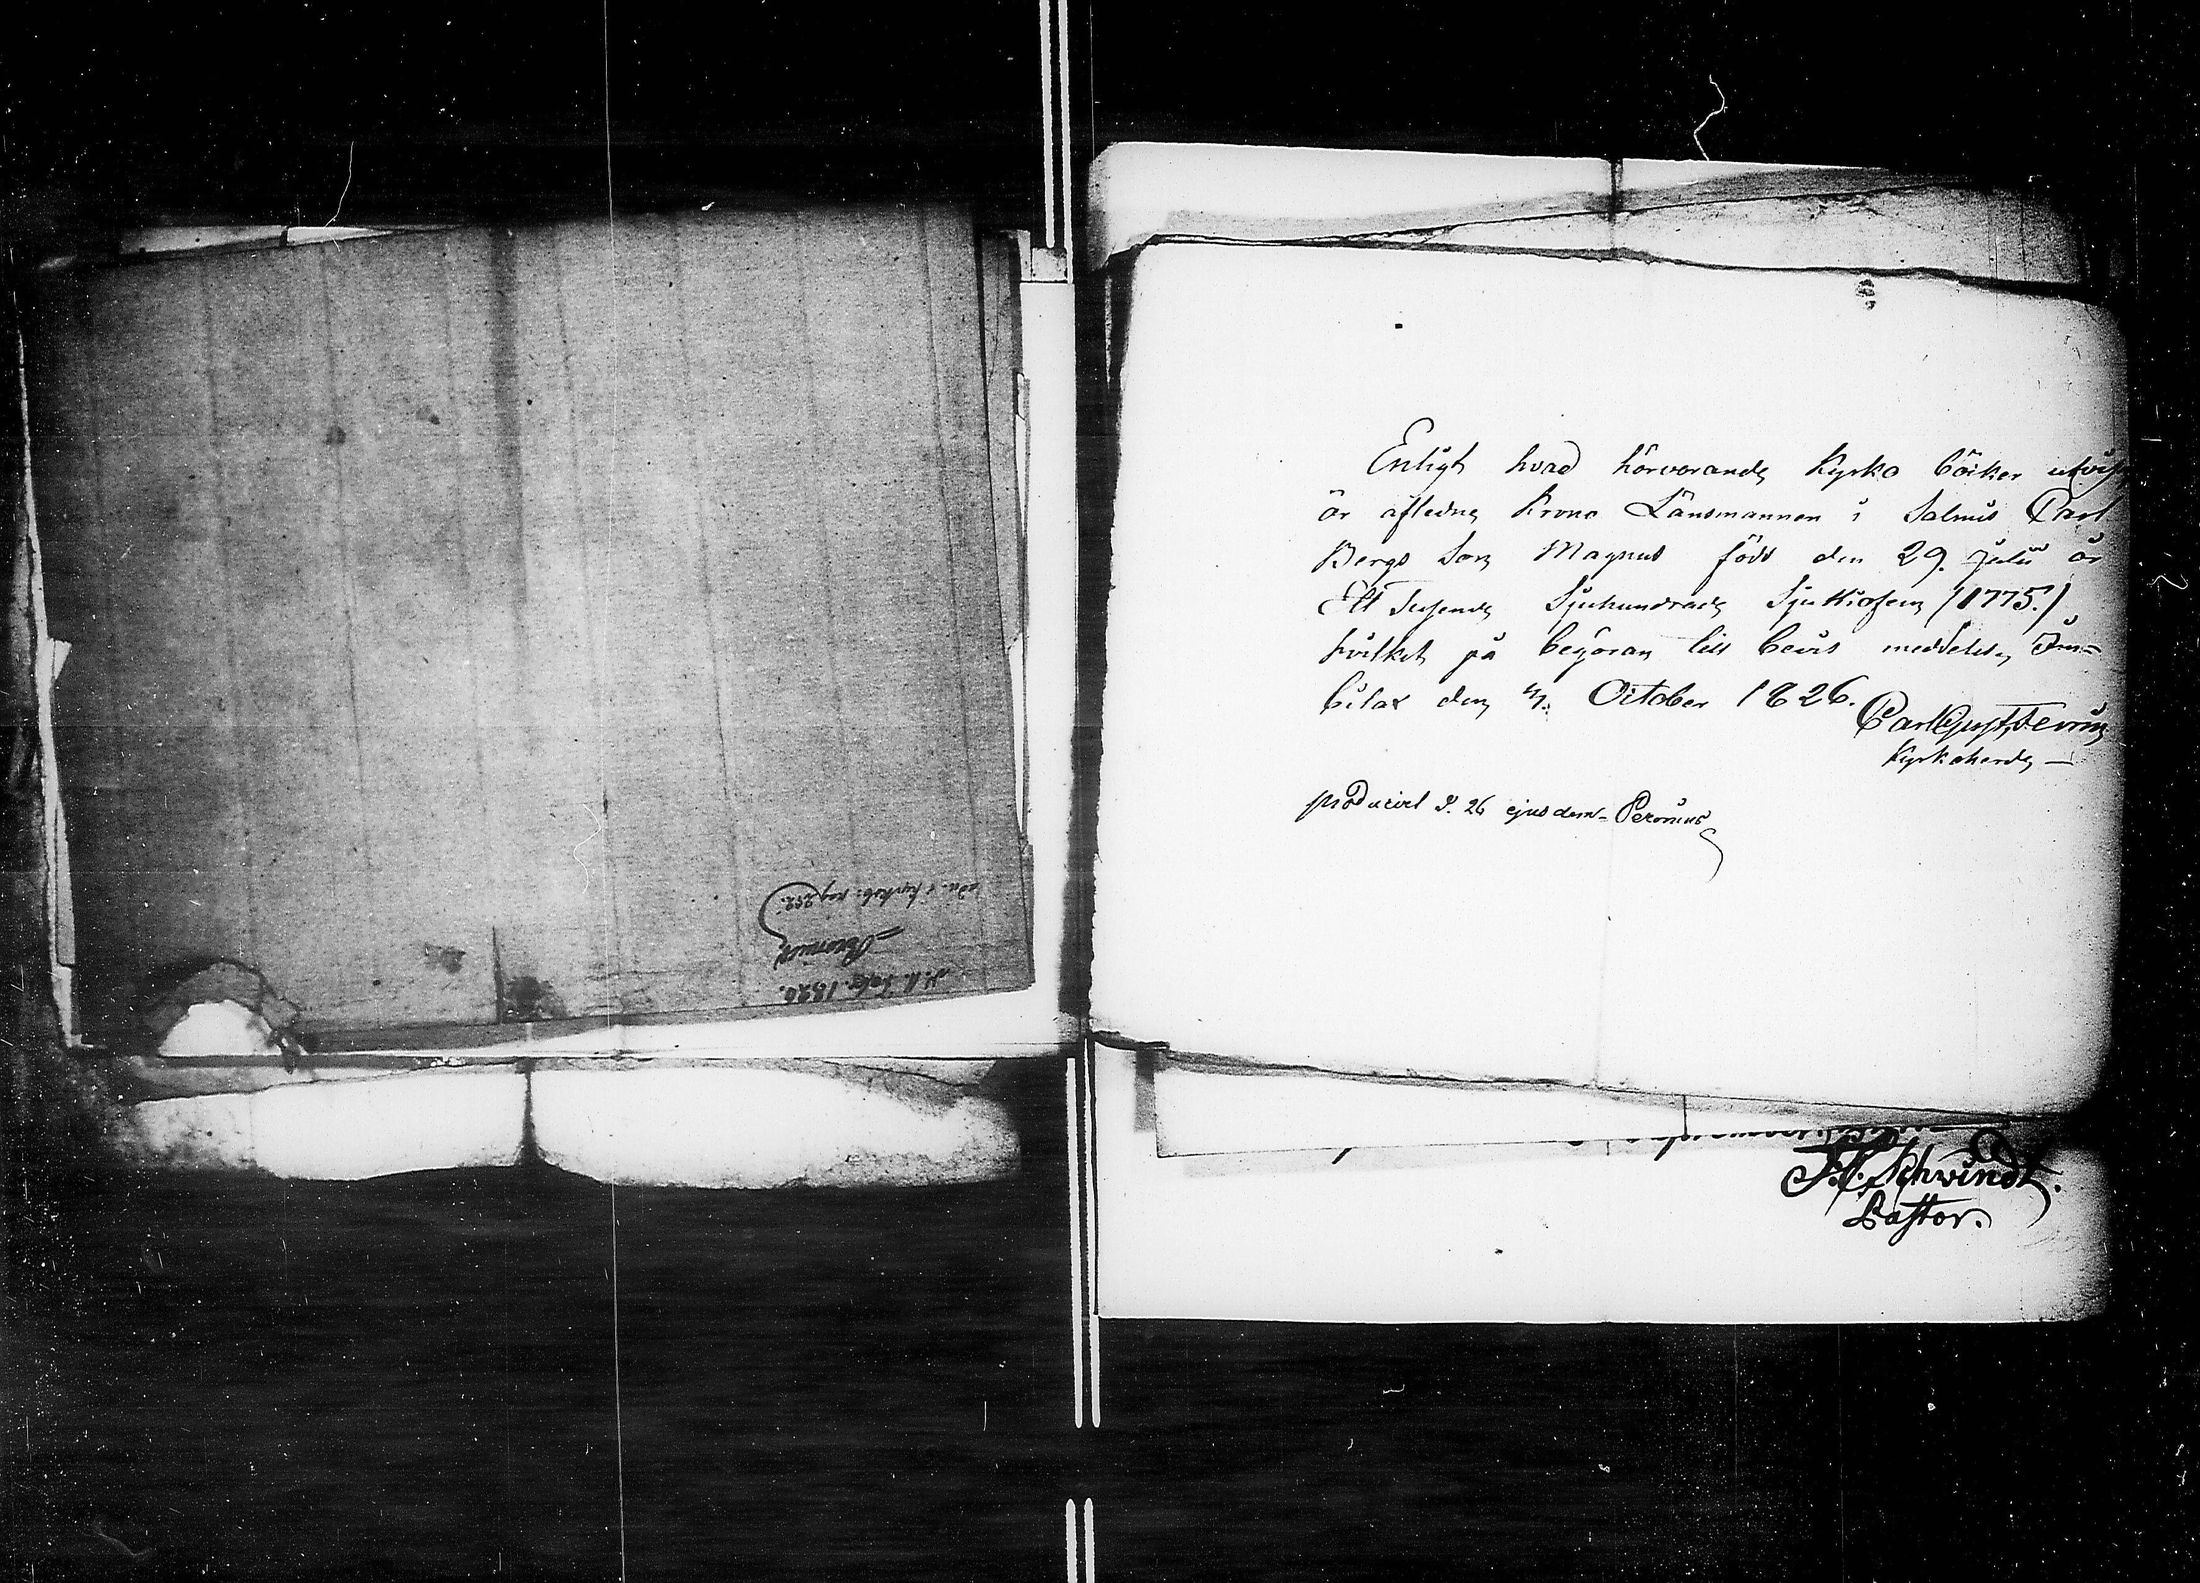 Enligt hvad härvarande Kyrko böcker utvisa
är afledne Krono Länsmannen i Salmis Carl
Bergs Son Magnus född den 29. Julii år
Ett Tusende Sjuhundrade Sjuttiofem (1775.)
hvilket på begäran till bevis meddelas, Im=
bilax den 4. October 1826.
Carl Gust.
Kyrkoherde
producirt d. 26 ejusdem
1826.
Schwindt.
Pastor.